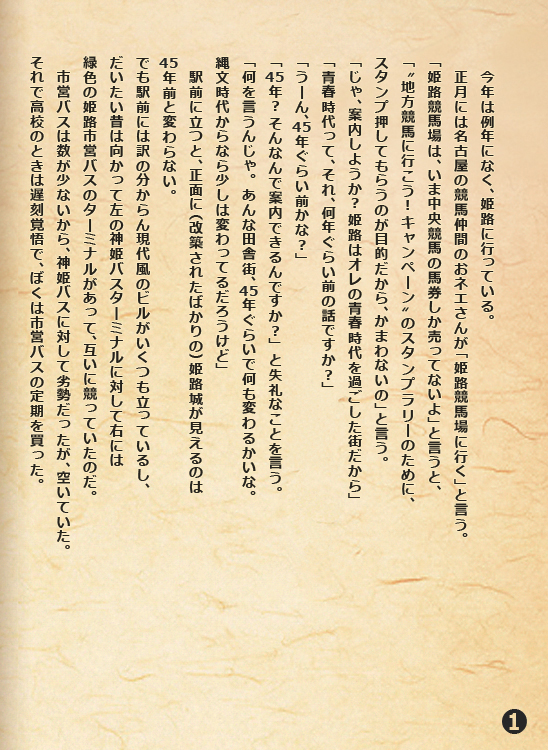 今年は例年になく、姫路に行っている。
正月には名古屋の競馬仲間のおネエさんが「姫路競馬場に行く」と言う。
「姫路競馬場は、いま中央競馬の馬券しか売ってないよ」と言うと、
「〝地方競馬に行こう！キャンペーン〟のスタンプラリーのために、
スタンプ押してもらうのが目的だから、かまわないの」と言う。
「じゃ、案内しようか？姫路はオレの青春時代を過ごした街だから」
「青春時代って、それ、何年ぐらい前の話ですか？」
「うーん、45年ぐらい前かな？」
「45年？そんなんで案内できるんですか？」と失礼なことを言う。
「何を言うんじゃ。あんな田舎街、45年ぐらいで何も変わるかいな。
縄文時代からなら少しは変わってるだろうけど」
駅前に立つと、正面に（改築されたばかりの）姫路城が見えるのは
45年前と変わらない。
でも駅前には訳の分からん現代風のビルがいくつも立っているし、
だいたい昔は向かって左の神姫バスターミナルに対して右には
緑色の姫路市営バスのターミナルがあって、互いに競っていたのだ。
市営バスは数が少ないから、神姫バスに対して劣勢だったが、空いていた。
それで高校のときは遅刻覚悟で、ぼくは市営バスの定期を買った。
1